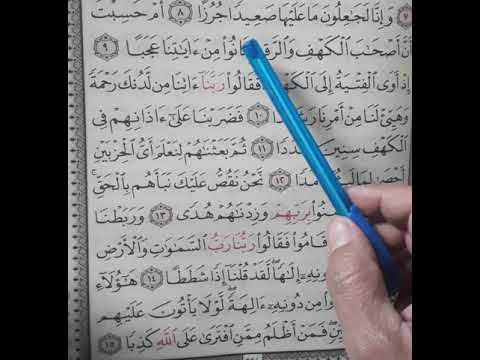 ٧ وَإِنَّا لَجَٰعِلُونَ مَا عَلَيْهَا صَعِيدًا جُرُزًا ٨ أَمْ حَسِبْتَ
أَنَّ أَصْحَٰبَ ٱلْكَهْفِ كَانُوا۟ مِنْ ءَايَٰتِنَا عَجَبًا ٩
إِذْ أَوَى ٱلْفِتْيَةُ إِلَى ٱلْكَهْفِ فَقَالُوا۟ رَبَّنَآ ءَاتِنَا مِن لَّدُنكَ رَحْمَةً
وَهَيِّئْ لَنَا مِنْ أَمْرِنَا ١٠ فَضَرَبْنَا عَلَىٰٓ ءَاذَانِهِمْ فِى
ٱلْكَهْفِ سِنِينَ ١١ ثُمَّ بَعَثْنَٰهُمْ لِنَعْلَمَ أَىُّ ٱلْحِزْبَيْنِ
١٢ نَّحْنُ نَقُصُّ عَلَيْكَ نَبَأَهُم بِٱلْحَقِّ ۚ
بِرَبِّهِمْ وَزِدْنَٰهُمْ هُدًى ١٣ وَرَبَطْنَا
قَامُوا۟ فَقَالُوا۟ رَبُّنَا رَبُّ ٱلسَّمَٰوَٰتِ وَٱلْأَرْضِ
إِلَٰهًا ۖ لَّقَدْ قُلْنَآ إِذًا شَطَطًا ١٤ هَٰٓؤُلَآءِ
مِن دُونِهِۦٓ ءَالِهَةً ۖ لَّوْلَا يَأْتُونَ عَلَيْهِم
فَمَنْ أَظْلَمُ مِمَّنِ ٱفْتَرَىٰ عَلَى ٱللَّهِ كَذِبًا ١٥